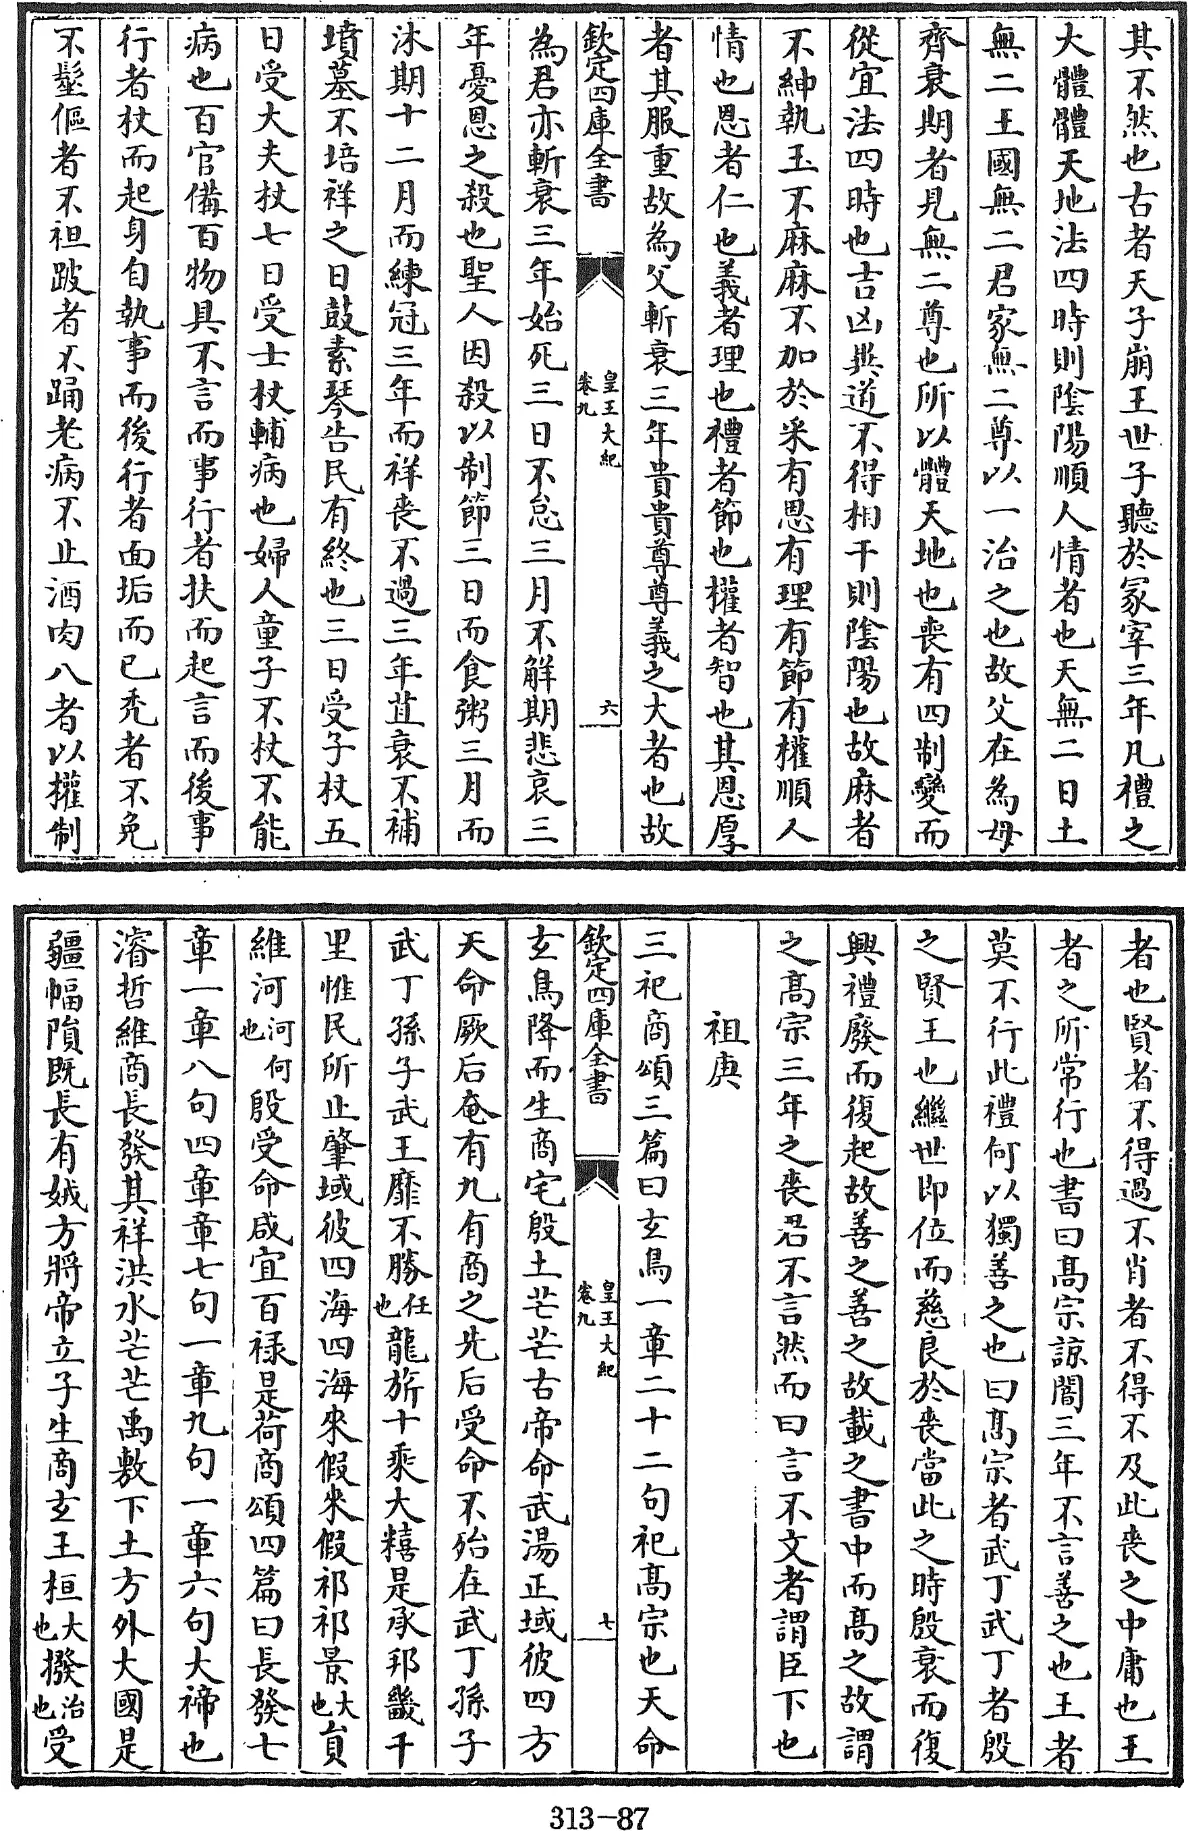 其不然也古者天子崩王世子聽於冢宰三年凡禮之
大體體天地法四時則陰陽順人情者也天無二日土
無二王國無二君家無二尊以一治之也故父在為母
齊衰期者見無二尊也所以體天地也喪有四制變而
從宜法四時也吉凶異道不得相干則陰陽也故麻者
不紳執玉不麻麻不加於采有恩有理有節有權順人
情也恩者仁也義者理也禮者節也權者智也其恩厚
者其服重故為父斬衰三年貴貴尊尊義之大者也故
欽定四庫全書 皇王大紀 卷九 六
為君亦斬衰三年始死三日不怠三月不解期悲哀三
年憂恩之殺也聖人因殺以制節三日而食粥三月而
沐期十二月而練冠三年而祥喪不過三年苴衰不補
墳墓不培祥之日鼓素琴告民有終也三日受子杖五
日受大夫杖七日受士杖輔病也婦人童子不杖不能
病也百官備百物具不言而事行者扶而起言而後事
行者杖而起身自執事而後行者面垢而已禿者不免
不髽傴者不袒跛者不踊老病不止酒肉八者以權制
者也賢者不得過不肖者不得不及此喪之中庸也王
者之所常行也書曰高宗諒闇三年不言善之也王者
莫不行此禮何以獨善之也曰高宗者武丁武丁者殷
之賢王也繼世即位而慈良於喪當此之時殷衰而復
興禮廢而復起故善之善之故載之書中而高之故謂
之高宗三年之喪君不言然而曰言不文者謂臣下也
祖庚
三祀商頌三篇曰玄鳥一章二十二句祀高宗也天命
欽定四庫全書 皇王大紀 卷九 七
玄鳥降而生商宅殷土芒芒古帝命武湯正域彼四方
天命厥后奄有九有商之先后受命不殆在武丁孫子
武丁孫子武王靡不勝任也龍旂十乘大糦是承邦畿千
里惟民所止肇域彼四海四海來假來假祁祁景大也員
維河河何也殷受命咸宜百祿是荷商頌四篇曰長發七
章一章八句四章章七句一章九句一章六句大禘也
濬哲維商長發其祥洪水芒芒禹敷下土方外大國是
疆幅隕既長有娀方將帝立子生商玄王桓大也撥治也受
313-87